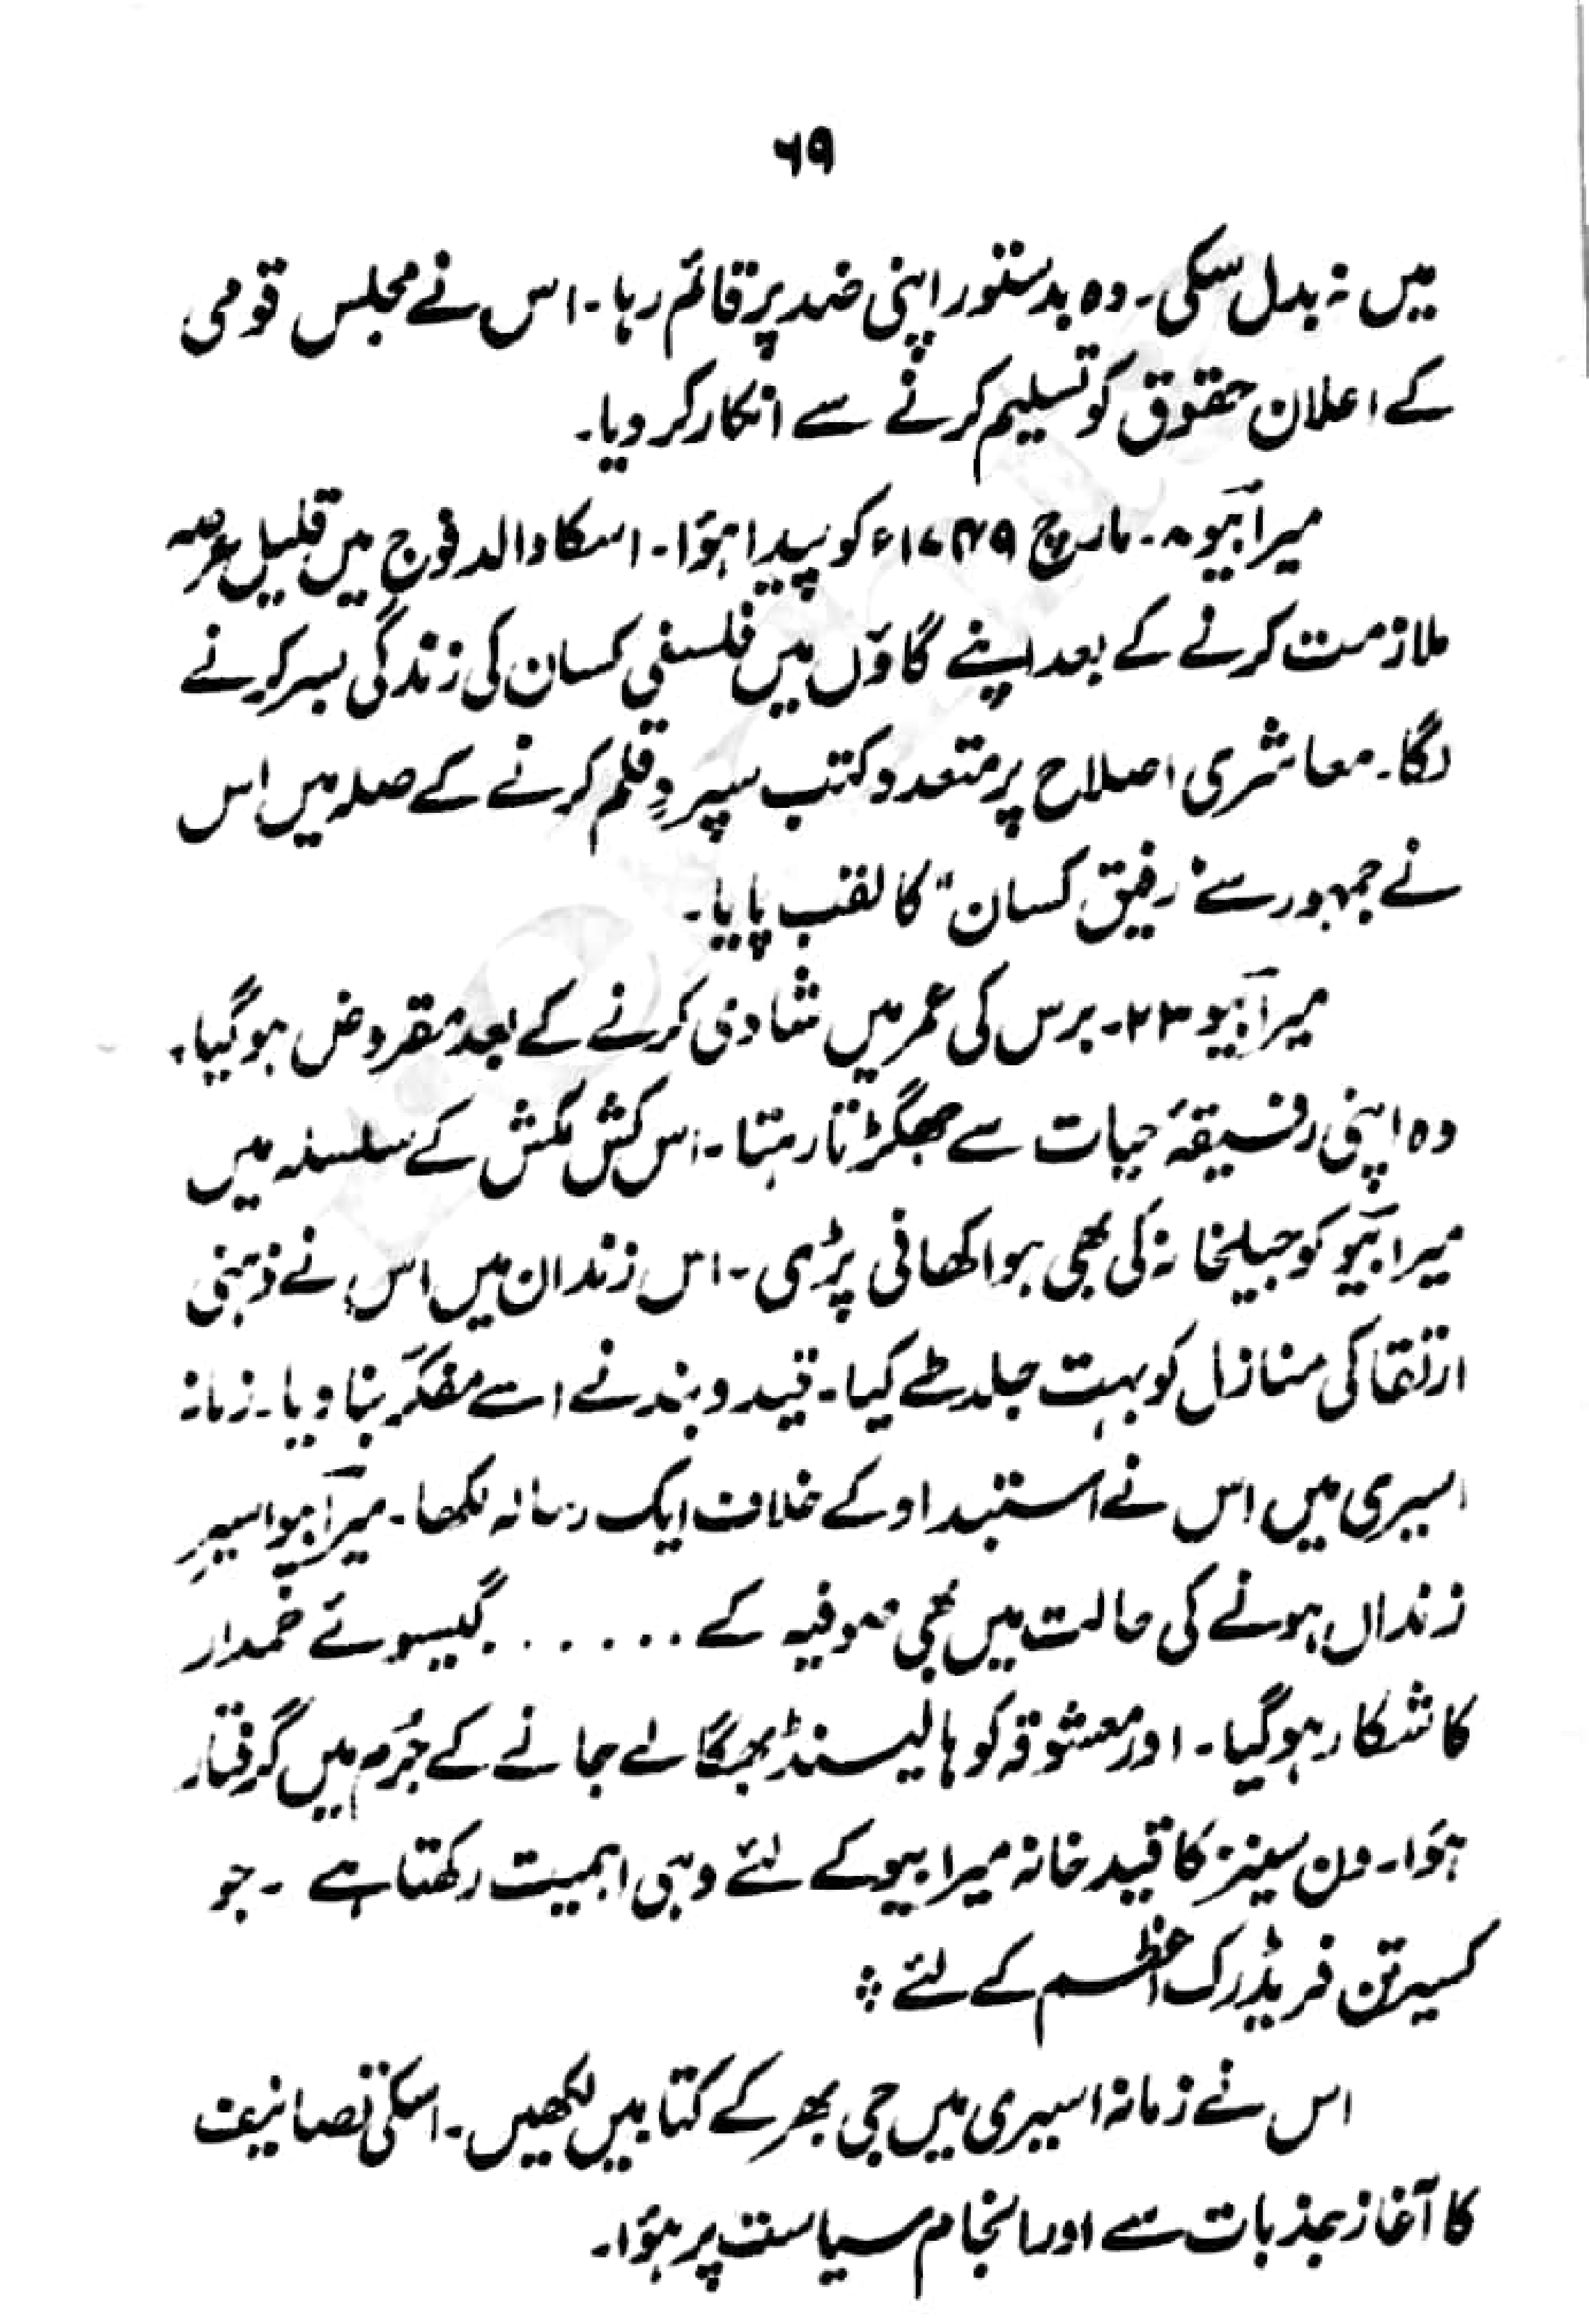 ۶۹
میں نہ بدل سکی۔ وہ بدستور اپنی ضد پر قائم رہا۔ اس نے مجلس قومی
کے اعلان حقوق کو تسلیم کرنے سے انکار کر دیا۔
میرابیو ۸۔ مارچ ۱۷۴۹ء کو پیدا ہؤا۔ اسکا والد فوج میں قلیل عرصہ
ملازمت کرنے کے بعد اپنے گاؤں میں فلسفی کسان کی زندگی بسر کرنے
لگا۔ معاشری اصلاح پر متعدد کتب سپردِ قلم کرنے کے صلہ میں اس
نے جمہور سے "رفیق کسان" کا لقب پایا۔
میرابیو ۲۳۔ برس کی عمر میں شادی کرنے کے بعد مقروض ہو گیا۔
وہ اپنی رفیقۂ حیات سے جھگڑتا رہتا۔ اس کش مکش کے سلسلہ میں
میرابیو کو جیلخانہ کی بھی ہوا کھانی پڑی۔ اس زندان میں اس نے ذہنی
ارتقا کی منازل کو بہت جلد طے کیا۔ قید و بند نے اسے مفکّر بنا دیا۔ زمانہ
اسیری میں اس نے استبداد کے خلاف ایک رسالہ لکھا۔ میرابیو اسیرِ
زنداں ہونے کی حالت میں بھی صوفیہ کے ....... گیسوئے خمدار
کا شکار ہو گیا۔ اور معشوقہ کو ہالیسنڈ بھگا لے جانے کے جُرم میں گرفتار
ہؤا۔ ون سینز کا قید خانہ میرابیو کے لئے وہی اہمیت رکھتا ہے ۔ جو
کسیرتن فریڈرک اعظم کے لئے ؞
اس نے زمانۂ اسیری میں جی بھر کے کتابیں لکھیں۔ اسکی تصانیف
کا آغاز جذبات سے اور انجام سیاست پر ہؤا۔